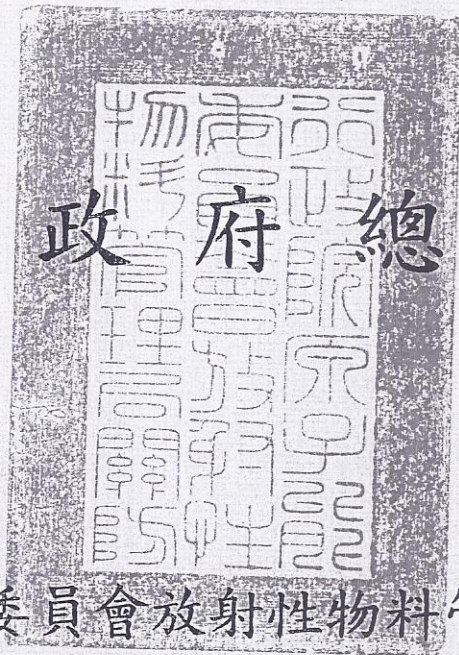 政府總
行政院原子能
委員會放射性
物料管理局關防
委員會放射性物料